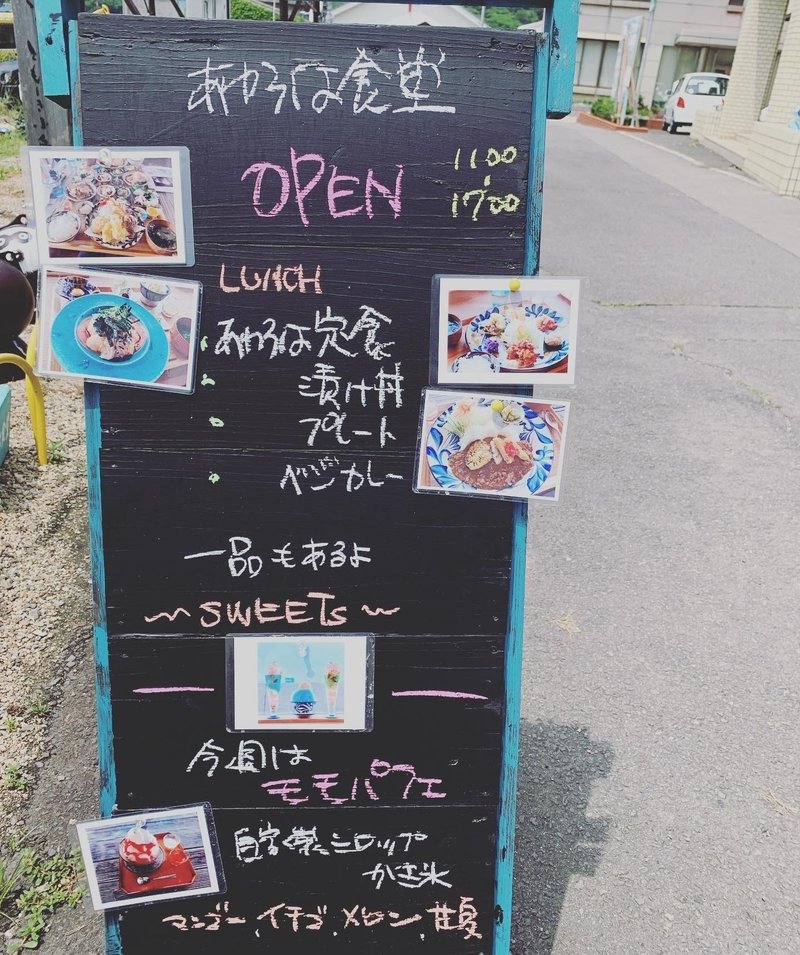 あわろは食堂
OPEN
11:00
17:00
LUNCH
・あわろは定食
・漬け丼
・プレート
・ベジカレー
一品もあるよ
〜SWEETs〜
今週は
モモパフェ
自家製シロップ
かき氷
マンゴー、イチゴ、メロン、甘夏